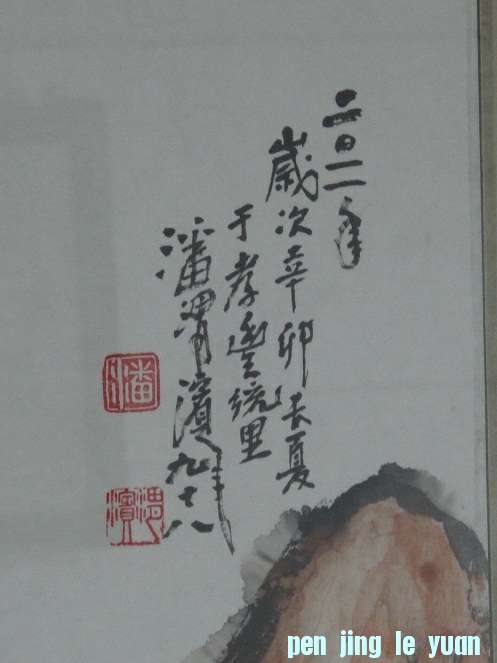 二〇一一年
歲次辛卯长夏
于孝豐統里
潘渭濱年九十八
潘印
渭濱
pen jing le yuan